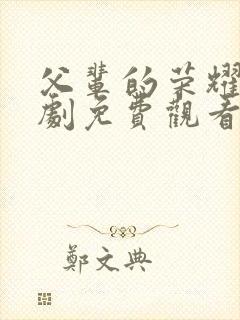 父輩的榮耀
劇免費觀看
鄭文典